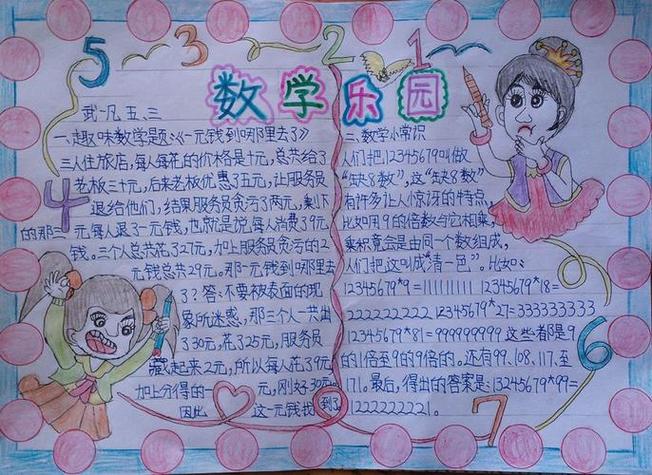 5
3
2
1
数学乐园
武一凡 五、三
一、趣味数学题:《一元钱到哪里去了》
三人住旅店,每人每花的价格是十元,总共给了
老板三十元,后来老板优惠了五元,让服务员
退给他们,结果服务员贪污了两元,剩下
的那三元每人退了一元钱,也就是说,每人消费了9元
钱。三个人总共花了27元,加上服务员贪污的2
元钱总共29元。那一元钱到哪里去
了?答:不要被表面的现
象所迷惑,那三个人一共出
了30元,花了25元,服务员
藏起来2元,所以每人花了9元,
加上分得的一元,刚好30元。
因此这一元钱找到了
4
三、数学小常识
人们把12345679叫做
“缺8数”,这“缺8数”
有许多让人惊讶的特点,
比如用9的倍数与它相乘,
乘积竟会是由同一个数组成,
人们把这叫成“清一色”。比如:
12345679*9=111111111 12345679*18=
222222222 12345679*27=333333333
12345679*81=999999999 这些都是9
的1倍至9的9倍的。还有99、108、117、至
171。最后,得出的答案是:13245679*99=
1222222221。
6
7